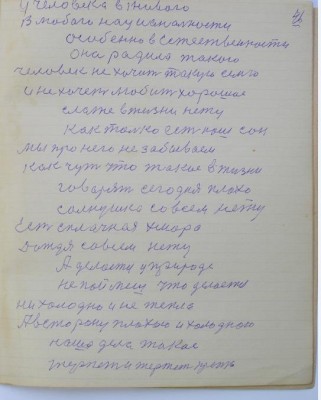 У человека в живого
26
В любого национальности
особенно в Естяственности
Она радила такого
человек не хочит такую села
и не хочет любит хорошая
слаже в жизни нету
Как только ест наш сон
мы про него не забываем
Как чут что такое в жизни
говарят сегодня плохо
солнушка совсем нету
Ест сплачная хмара
Дождя совсем нету
А делаеть у природе
не поймешу что делаети
ни холодно и не тепло
А всторону плохого и холодного
наша дела такае
терпет и терпет